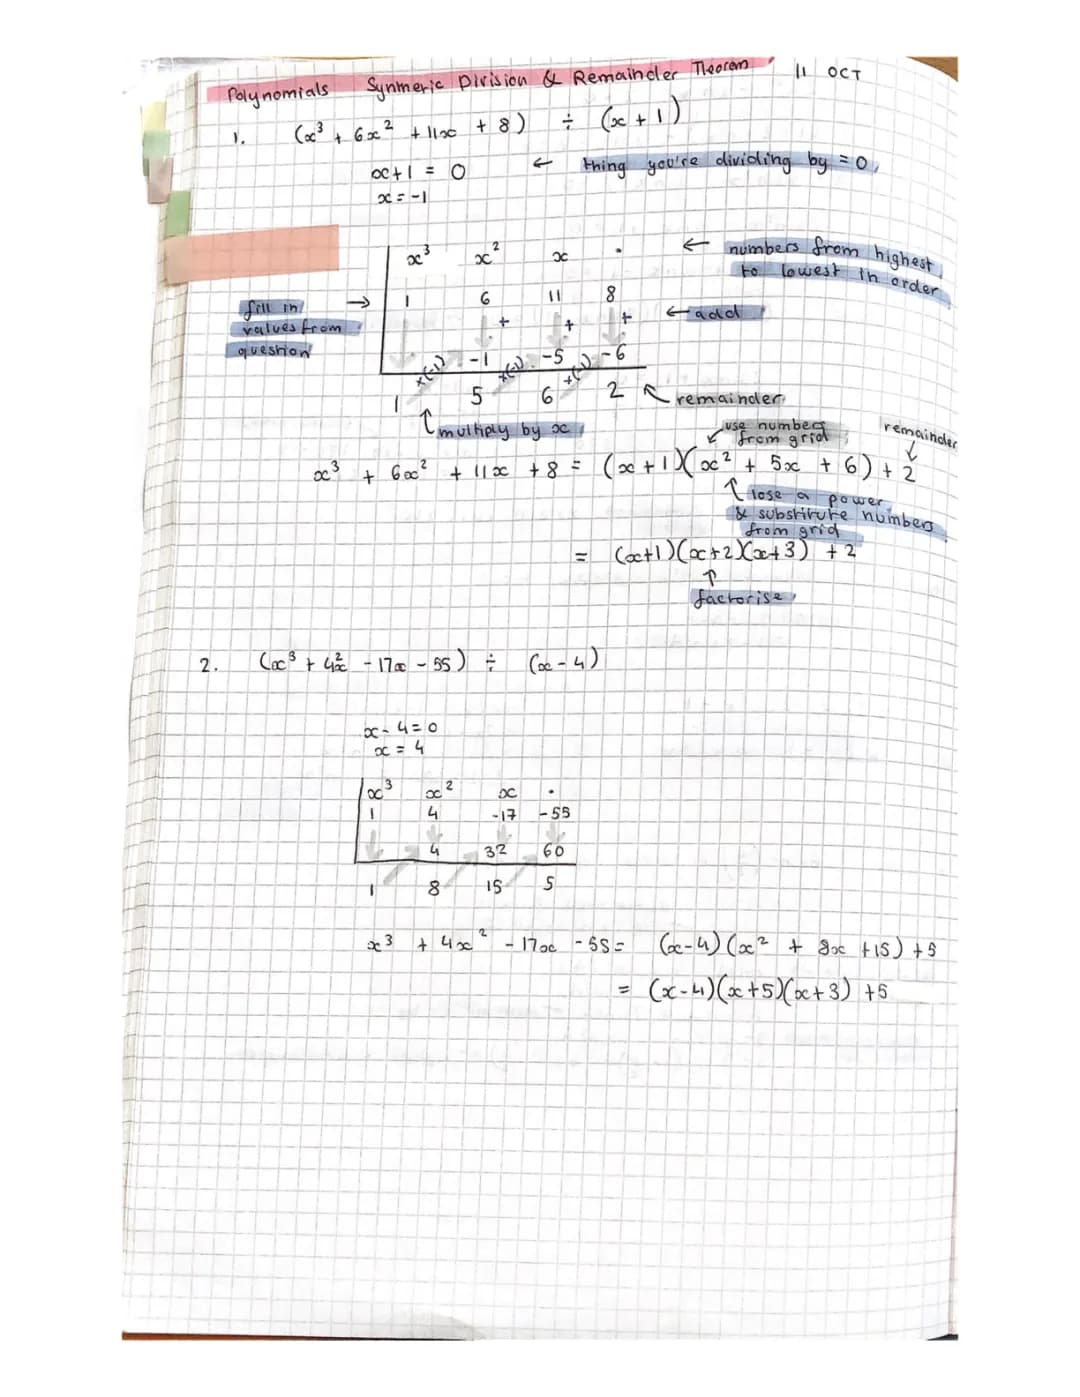 Polynomials Synmeric Division & Remainder Theorem 11 OCT
1. (x³ + 6x² + 11x + 8) ÷ (x + 1)
x+1 = 0 ← thing you're dividing by = 0
x = -1
x³ x² x • ← numbers from highest
to lowest in order
fill in → 1 6 11 8
values from + + + ← add
question
x(-1) -1 x(-1) -5 x(-1) -6
1 5 6 2 remainder
↑ multiply by x
use numbers remainder
from grid ↓
x³ + 6x² + 11x + 8 = (x + 1)(x² + 5x + 6) + 2
↑ lose a power
& substitute numbers
from grid
= (x+1)(x+2)(x+3) + 2
↑
factorise
2. (x³ + 4x² - 17x - 55) ÷ (x - 4)
x - 4 = 0
x = 4
x³ x² x •
1 4 -17 -55
4 32 60
1 8 15 5
x³ + 4x² - 17x - 55 = (x-4)(x² + 8x + 15) + 5
= (x-4)(x+5)(x+3) + 5